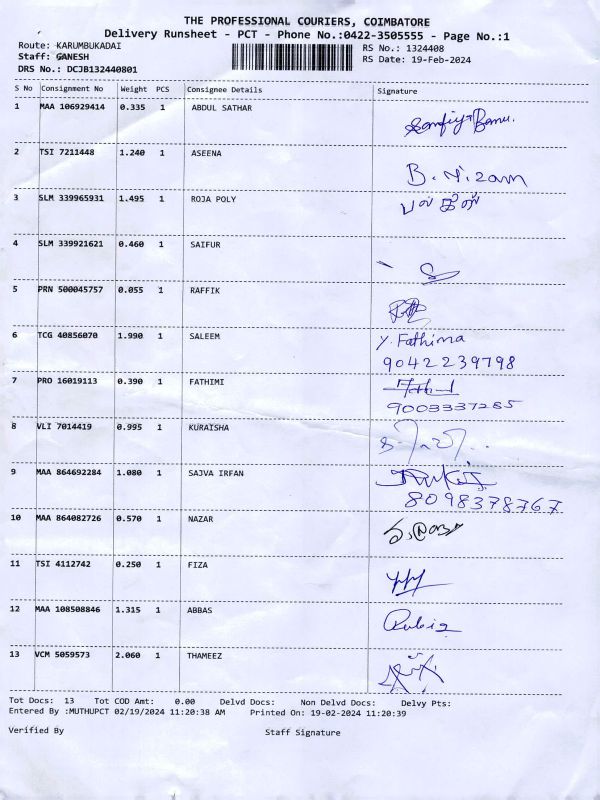 THE PROFESSIONAL COURIERS, COIMBATORE
Delivery Runsheet - PCT - Phone No.:0422-3505555 - Page No.:1
Route: KARUMBUKADAI RS No.: 1324408
Staff: GANESH RS Date: 19-Feb-2024
DRS No.: DCJB132440801
S No Consignment No Weight PCS Consignee Details Signature
1 MAA 106929414 0.335 1 ABDUL SATHAR
2 TSI 7211448 1.240 1 ASEENA B. Nizam
3 SLM 339965931 1.495 1 ROJA POLY
4 SLM 339921621 0.460 1 SAIFUR
5 PRN 500045757 0.055 1 RAFFIK
6 TCG 40856070 1.990 1 SALEEM Y. Fathima
9042239798
7 PRO 16019113 0.390 1 FATHIMI
9003337285
8 VLI 7014419 0.995 1 KURAISHA
9 MAA 864692284 1.080 1 SAJVA IRFAN
8098378767
10 MAA 864082726 0.570 1 NAZAR
11 TSI 4112742 0.250 1 FIZA
12 MAA 108508846 1.315 1 ABBAS
13 VCM 5059573 2.060 1 THAMEEZ
Tot Docs: 13 Tot COD Amt: 0.00 Delvd Docs: Non Delvd Docs: Delvy Pts:
Entered By :MUTHUPCT 02/19/2024 11:20:38 AM Printed On: 19-02-2024 11:20:39
Verified By Staff Signature